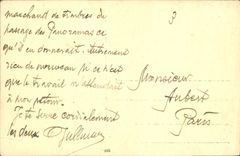 marchand de timbres du
passage des Panoramas ce
qu'il en donnerait. Autrement
rien de nouveau si ce n'est
que le travail m'attendait
à mon retour.
Je te serre cordialement
les deux
3
Monsieur
Aubert
Paris